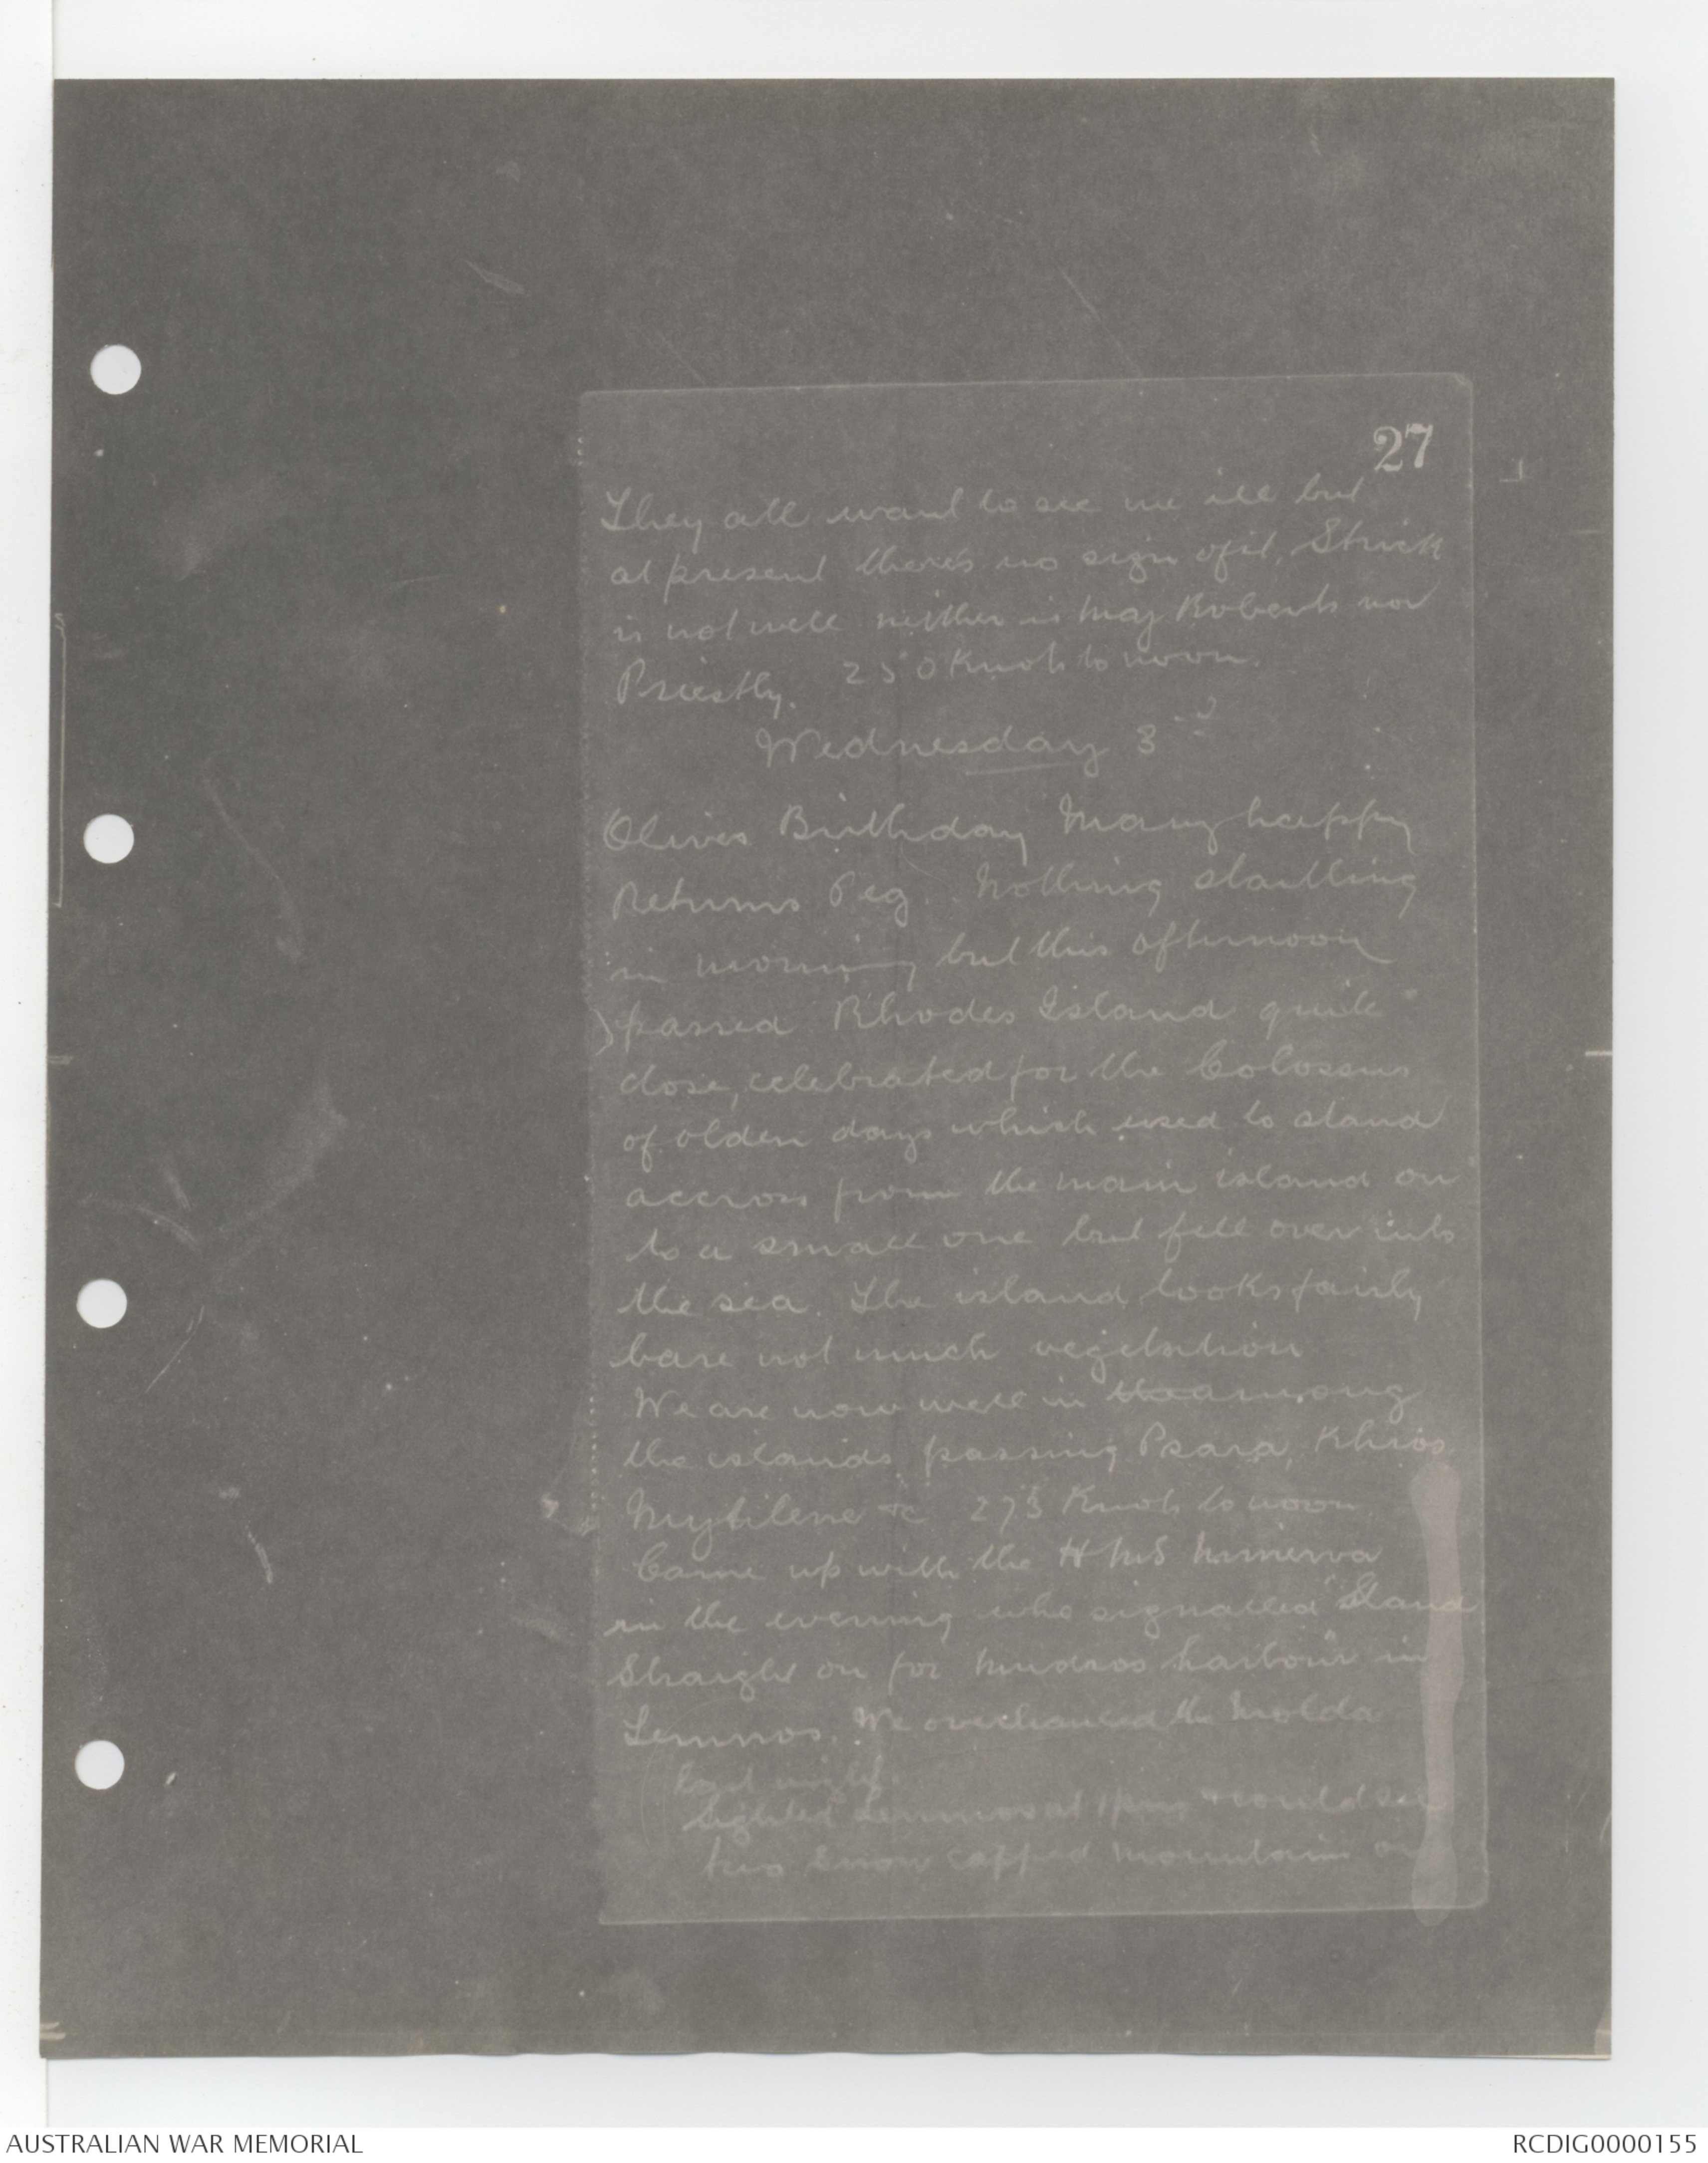 27
They all want to see me ill but
at present there's no sign of it. Strick
is not well neither is Maj Roberts nor
Priestly. 250 Knots to noon.
Wednesday 3
Olives Birthday Many happy
Returns Peg. Nothing startling
in morning but this afternoon
passed Rhodes Island quite
close, celebrated for the Colossus
of olden days which used to stand
accross from the main island on
to a small one but fell over into
the sea. The island looks fairly
bare not much vegetation
We are now well in among
the islands passing Psara, Khios
Mytilene &c 273 Knots to noon
Came up with the HMS Minerva
in the evening who signalled "Stand
Straight on for Mudros harbour" in
Lemnos. We overhauled the Molda
last night.
Sighted Lemnos at 1pm & could see
two snow capped mountains on
AUSTRALIAN WAR MEMORIAL
RCDIG0000155